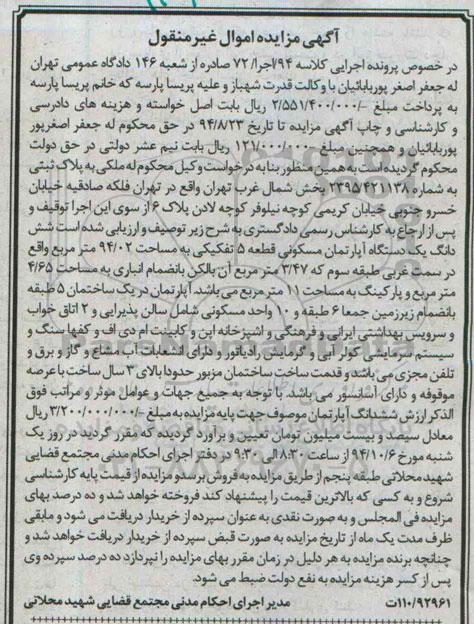 آگهی مزایده اموال غیر منقول
در خصوص پرونده اجرایی کلاسه ۹۴/اجرا/۷۲ صادره از شعبه ۱۴۶ دادگاه عمومی تهران
له جعفر اصغر پوربابائیان با وکالت قدرت شهباز و علیه پریسا پارسه که خانم پریسا پارسه
به پرداخت مبلغ -/۲/۵۵۱/۴۰۰/۰۰۰ ریال بابت اصل خواسته و هزینه های دادرسی
و کارشناسی و چاپ آگهی مزایده تا تاریخ ۹۴/۸/۲۳ در حق محکوم له جعفر اصغرپور
پوربابائیان و همچنین مبلغ -/۱۲۱/۰۰۰/۰۰۰ ریال بابت نیم عشر دولتی در حق دولت
محکوم گردیده است به همین منظور بنا به درخواست وکیل محکوم له ملکی به پلاک ثبتی
به شماره ۲۳۹۵۴۲۱۱۳۸ بخش شمال غرب تهران واقع در تهران فلکه صادقیه خیابان
خسرو جنوبی خیابان کریمی کوچه نیلوفر کوچه لادن پلاک ۶ از سوی این اجرا توقیف و
پس از ارجاع به کارشناس رسمی دادگستری به شرح زیر توصیف و ارزیابی شده است شش
دانگ یکدستگاه آپارتمان مسکونی قطعه ۵ تفکیکی به مساحت ۹۴/۰۲ متر مربع واقع
در سمت غربی طبقه سوم که ۳/۴۷ متر مربع آن بالکن بانضمام انباری به مساحت ۴/۶۵
متر مربع و پارکینگ به مساحت ۱۱ متر مربع می باشد. آپارتمان در یک ساختمان ۵ طبقه
بانضمام زیرزمین جمعا ۶ طبقه و ۱۰ واحد مسکونی شامل سالن پذیرایی و ۲ اتاق خواب
و سرویس بهداشتی ایرانی و فرهنگی و آشپزخانه اپن و کابینت ام دی اف و کفها سنگ و
سیستم سرمایشی کولر آبی و گرمایش رادیاتور و دارای انشعابات آب مشاع و گاز و برق و
تلفن مجزی می باشد و قدمت ساخت ساختمان مزبور حدودا بالای ۳ سال ساخت با عرصه
موقوفه و دارای آسانسور می باشد. با توجه به جمیع جهات و عوامل موثر و مراتب فوق
الذکر ارزش ششدانگ آپارتمان موصوف جهت پایه مزایده به مبلغ -/۳/۲۰۰/۰۰۰/۰۰۰ ریال
معادل سیصد و بیست میلیون تومان تعیین و برآورد گردیده که مقرر گردید در روز یک
شنبه مورخ ۹۴/۱۰/۶ از ساعت ۸:۳۰ الی ۹:۳۰ در دفتر اجرای احکام مدنی مجتمع قضایی
شهید محلاتی طبقه پنجم از طریق مزایده به فروش برسد و مزایده از قیمت پایه کارشناسی
شروع و به کسی که بالاترین قیمت را پیشنهاد کند فروخته خواهد شد و ده درصد بهای
مزایده فی المجلس و به صورت نقدی به عنوان سپرده از خریدار دریافت می شود و مابقی
ظرف مدت یک ماه از تاریخ مزایده به صورت قبض سپرده از خریدار دریافت خواهد شد و
چنانچه برنده مزایده به هر دلیل در زمان مقرر بهای مزایده را نپردازد ده درصد سپرده وی
پس از کسر هزینه مزایده به نفع دولت ضبط می شود.
۱۱۰/۹۲۹۶۱ت مدیر اجرای احکام مدنی مجتمع قضایی شهید محلاتی